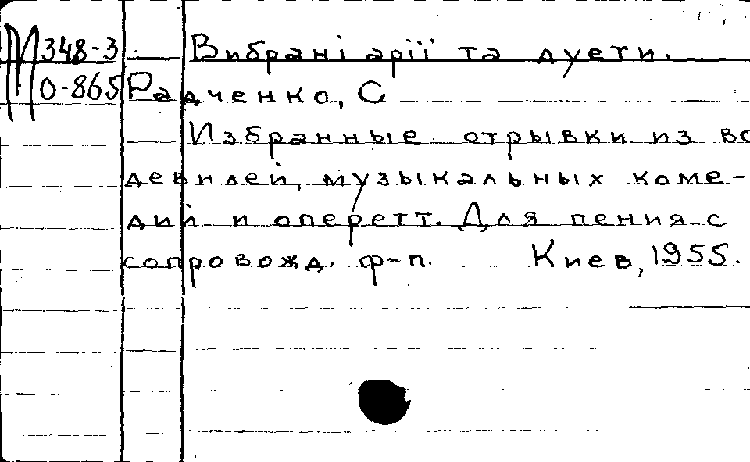 М 348-3 Вибрані арії та дуети.
О-865 Радченко, С
Избранные отрывки из во
девилей, музыкальных коме-
дий и оперетт. Для пения с
сопровожд. ф-п. Киев, 1955.